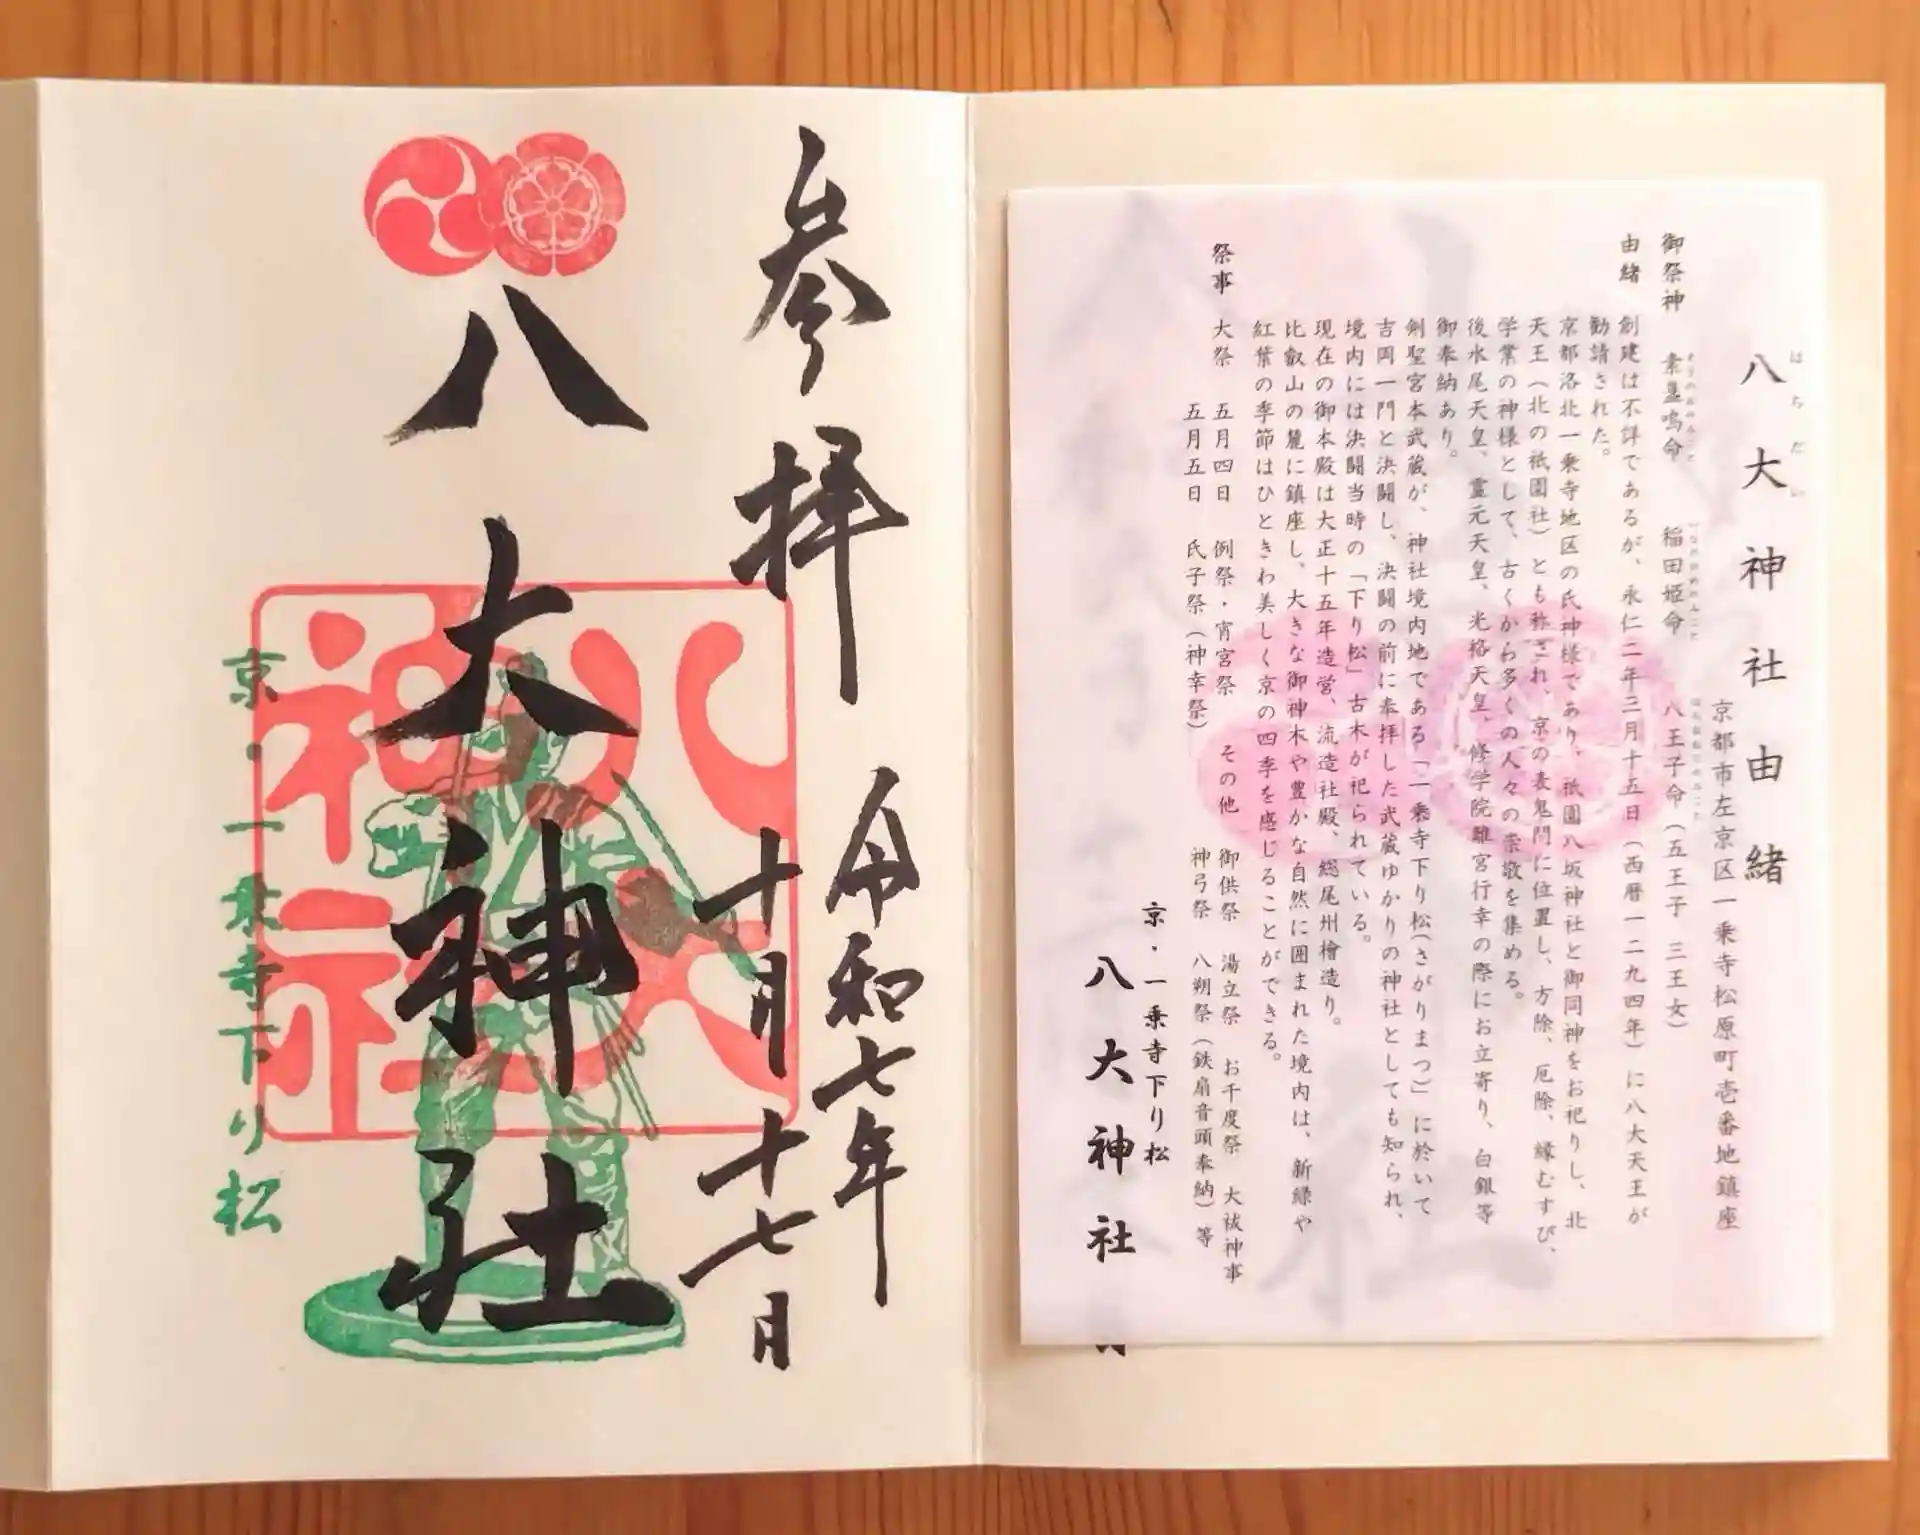 参拝
令和七年
十月十七日
八大神社
八大神社
京・一乗寺下り松
はちだい
八大神社由緒
京都市左京区一乗寺松原町壱番地鎮座
御祭神 素盞嗚命 稲田姫命 八王子命(五王子 三王女)
由緒 創建は不詳であるが、永仁二年三月十五日(西暦一二九四年)に八大天王が
勧請された。
京都洛北一乗寺地区の氏神様であり、祇園八坂神社と御同神をお祀りし、北
天王(北の祇園社)とも称され、京の表鬼門に位置し、方除、厄除、縁むすび、
学業の神様として、古くから多くの人々の崇敬を集める。
後水尾天皇、霊元天皇、光格天皇、修学院離宮行幸の際にお立寄り、白銀等
御奉納あり。
剣聖宮本武蔵が、神社境内地である「一乗寺下り松(さがりまつ)」に於いて
吉岡一門と決闘し、決闘の前に奉拝した武蔵ゆかりの神社としても知られ、
境内には決闘当時の「下り松」古木が祀られている。
現在の御本殿は大正十五年造営、流造社殿、総尾州檜造り。
比叡山の麓に鎮座し、大きな御神木や豊かな自然に囲まれた境内は、新緑や
紅葉の季節はひときわ美しく京の四季を感じることができる。
祭事 大祭 五月四日 例祭・宵宮祭 その他 御供祭 湯立祭 お千度祭 大祓神事
五月五日 氏子祭(神幸祭) 神弓祭 八朔祭(鉄扇音頭奉納)等
京・一乗寺下り松
八大神社